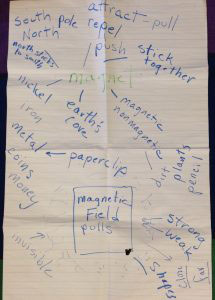 attract = pull
south pole
North
repel
push
stick
together
north sticks
to south
magnet
nickel
iron
metal
coins
money
earth's
core
magnetic
nonmagnetic
dirt
plants
pencil
paperclip
magnetic
Field
pulls
strong
weak
invisible
shapes